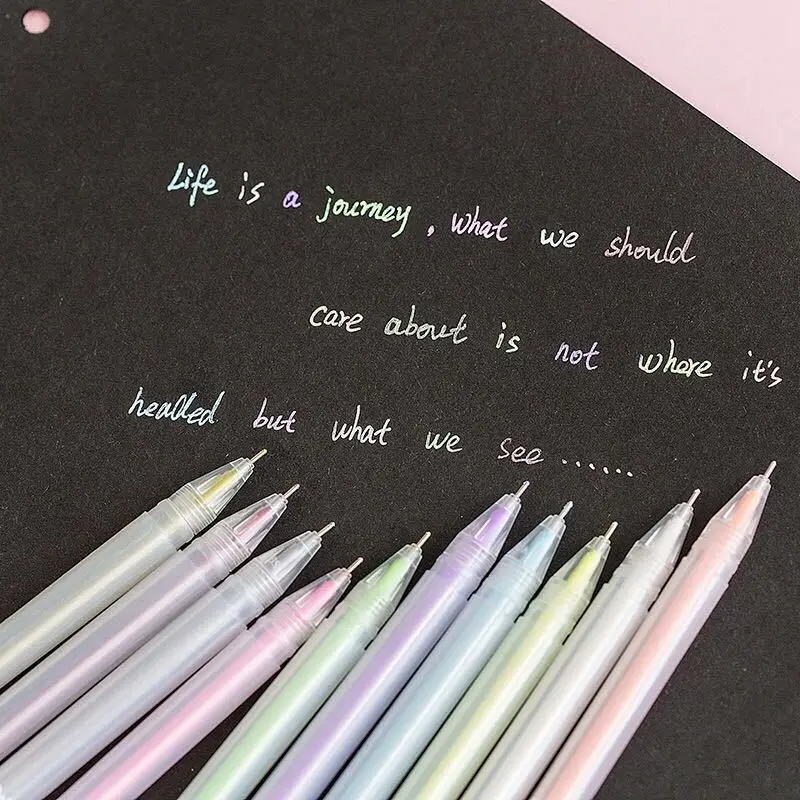 Life is a journey, what we should
care about is not where it's
headed but what we see ......